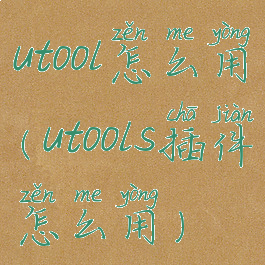 zěn me yòng
utool怎么用
chā jiàn
(utools插件
zěn me yòng
怎么用)